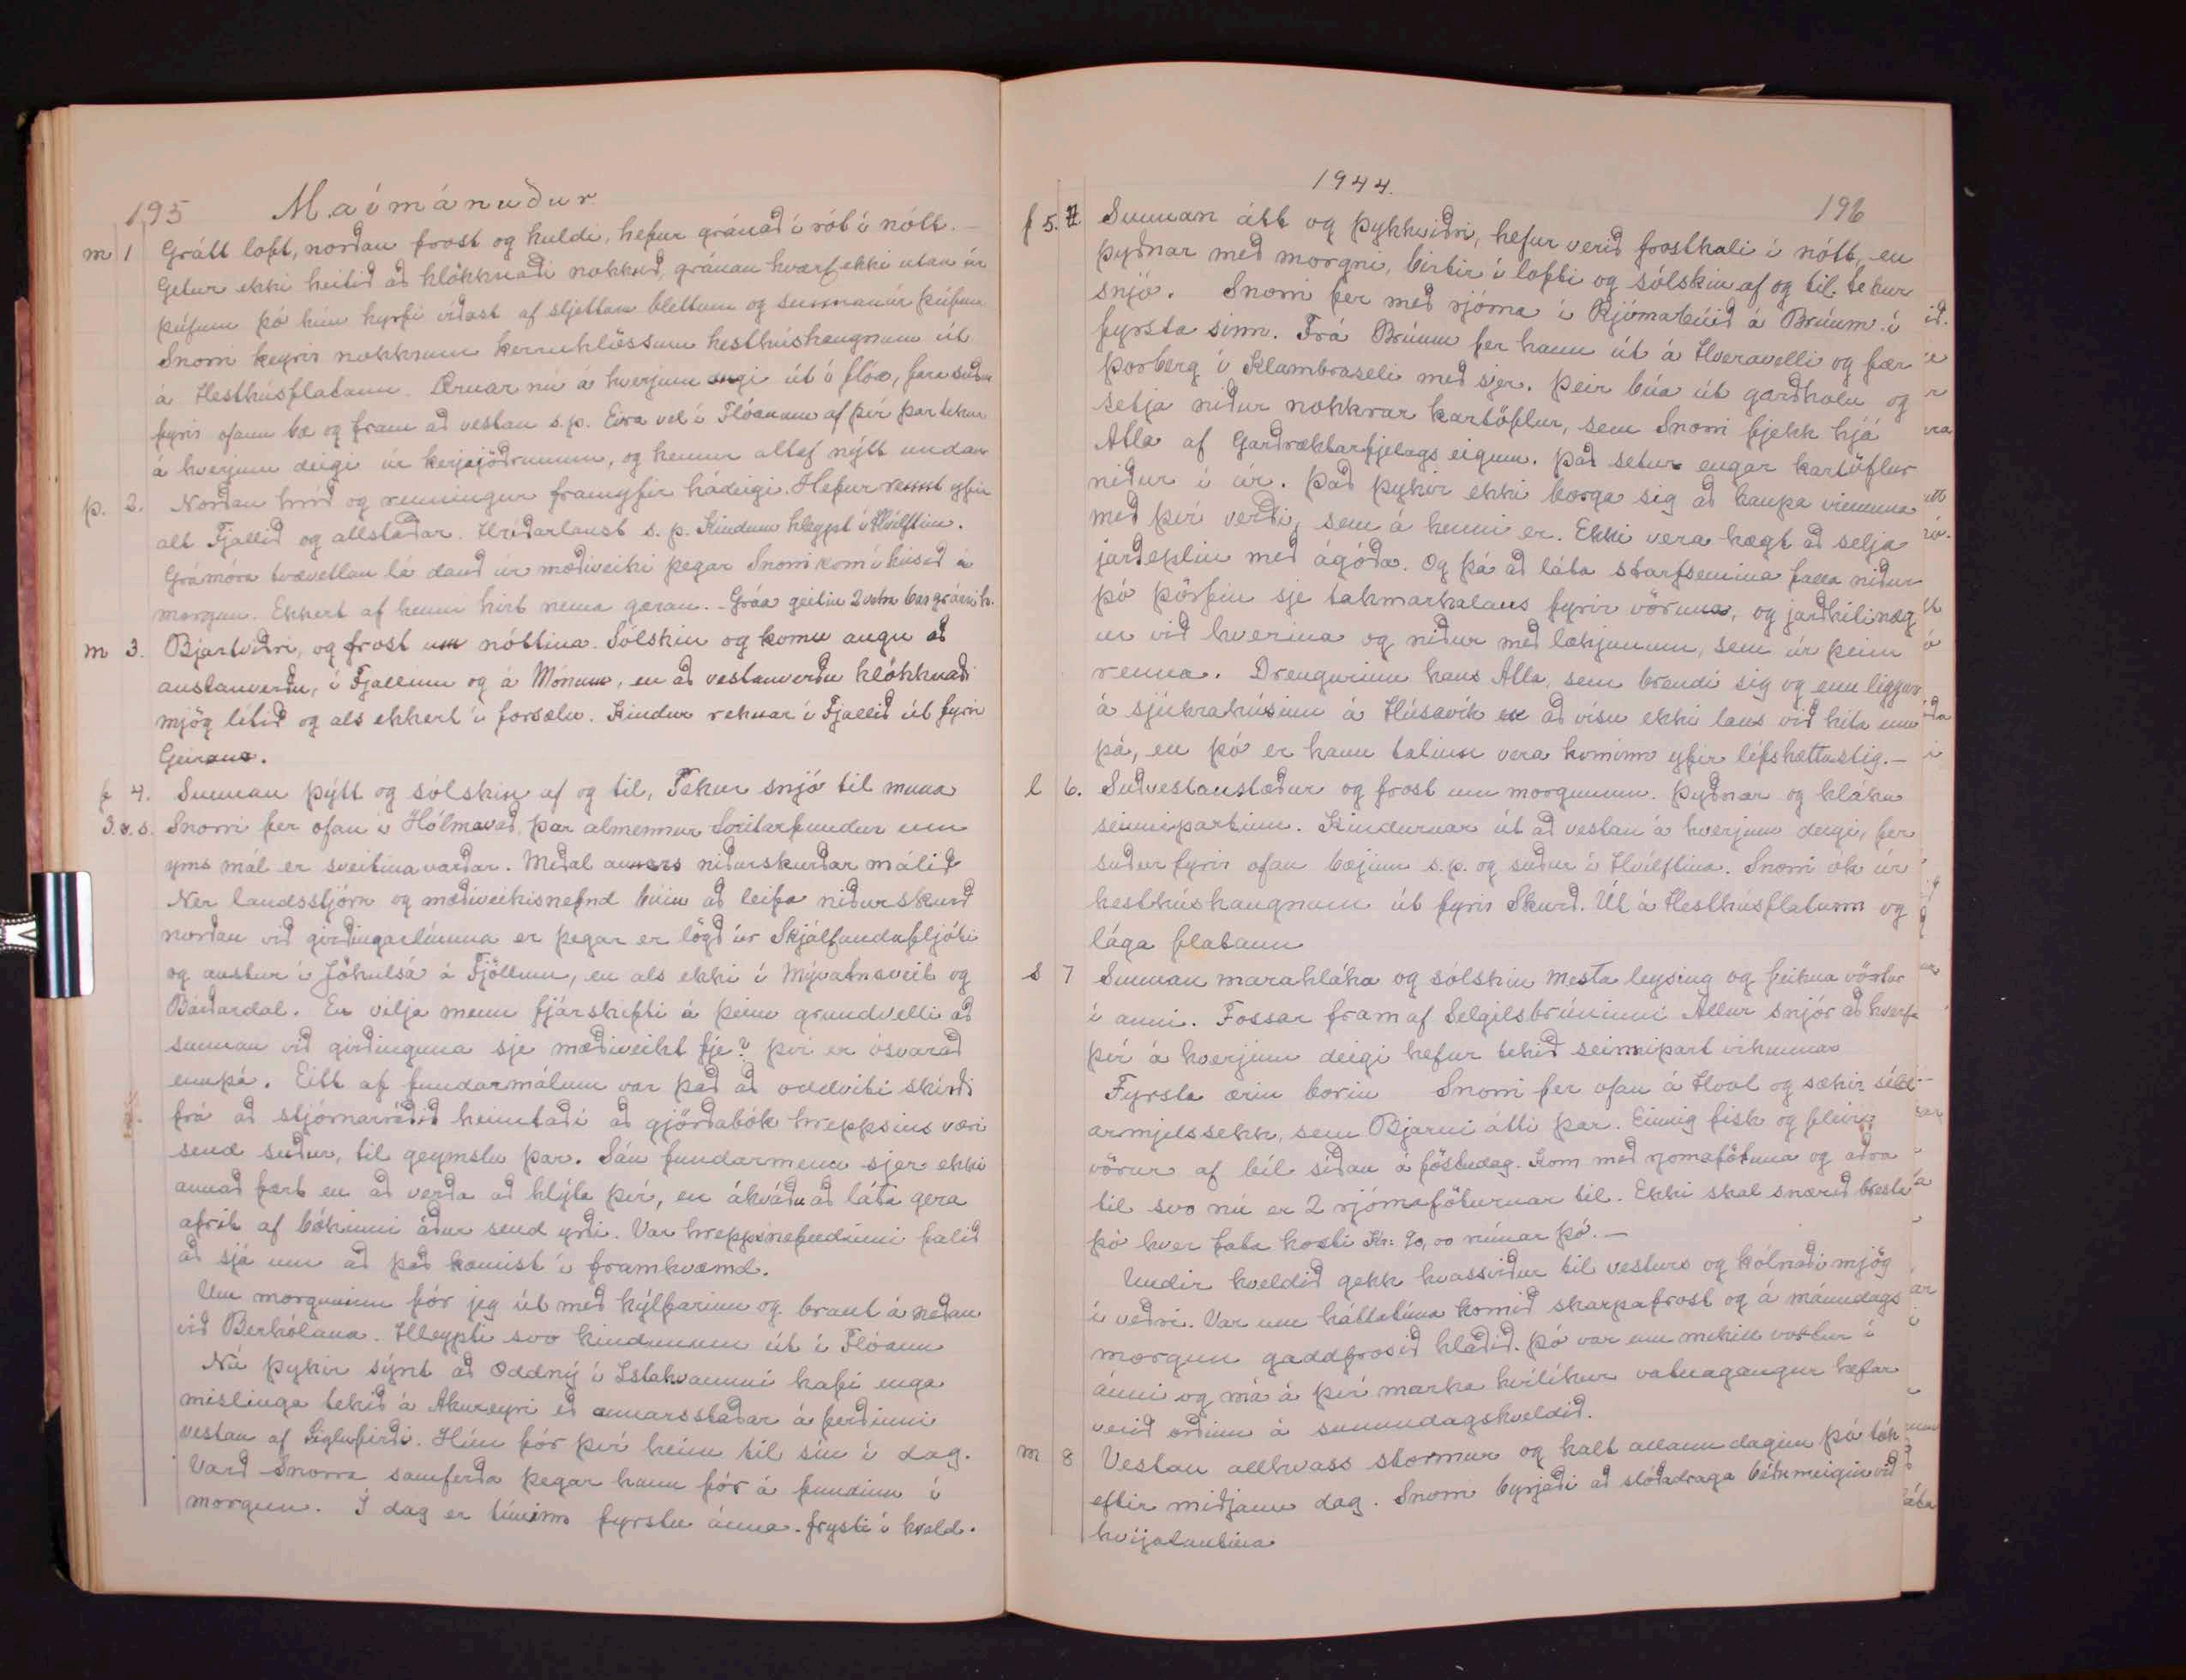 195 Maímánuður
m 1 Grátt loft, norðan frost og kuldi, hefur gránað í rót í nótt. -
Getur ekki heitið að klökknaði nokkuð, gránan hvarf ekki utan úr
þúfum þó hún hyrfi víðast af sljettum blettum og sunnanúr þúfum
Snorri keyrir nokkrum kerruhlössum hesthúshaugnum út
á Hesthúsflatann. Ærnar nú á hverjum degi út í flóa, fara suður
fyrir ofann bæ og fram að vestan s.p. Eira vel í Flóanum af því þar tekur
á hverjum deigi úr kerjajöðrunum, og kemur altaf nýtt undan
þ. 2. Norðan hríð og renningur framyfir hádeigi. Hefur rennt yfir
alt Fjallið og allstaðar. Hríðarlaust s.p. Kindum hleypt í Hvílftina.
Grámóra tvævetlan lá dauð úr mæðiveiki þegar Snorri kom í húsið í
morgun. Ekkert af henni hirt nema gæran. - Gráa geitin 2 vetra bar gráum h.
m 3. Bjartviðri, og frost um nóttina. Sólskin og komu augu að
austanverðu, í Fjallinu og á Mónum, en að vestanverðu klökknaði
mjög lítið og als ekkert í forsælu. Kindur reknar í Fjallið út fyrir
Geirana.
f 4. Sunnan þýtt og sólskin af og til, Tekur snjó til muna
3.v.s. Snorri fer ofan í Hólmavað, þar almennur Sveitarfundur um
yms mál er sveitina varðar. Meðal annars niðurskurðar málið
Ner landsstjórn og mæðiveikisnefnd búin að leifa niðurskurð
norðan við girðingarlínuna er þegar er lögð úr Skjálfandafljóti
og austur í Jökulsá á Fjöllum, en als ekki í Mývatnsveit og
Bárðardal. En vilja menn fjárskifti á þeim grundvelli að
sunnan við girðinguna sje mæðiveikt fje? því er ósvarað
ennþá. Eitt af fundarmálum var það að oddviti skírði
frá að stjórnarráðið heimtaði að gjörðabók hreppsins væri
send suður, til geymslu þar. Sáu fundarmenn sjer ekki
annað fært en að verða að hlýta því, en ákváðu að láta gera
afrit af bókinni áður send yrði. Var hreppsnefndinni falið
að sjá um að það kæmist í framkvæmd.
Um morguninn fór jeg út með kýlfarinu og braut á neðan
við Berhólana. Hleypti svo kindunum út í Flóann
Nú þykir sýnt að Oddný í Ystahvammi hafi enga
mislinga tekið á Akureyri eð annarsstaðar á ferðinni
vestan af Siglufirði. Hún fór því heim til sín í dag.
Varð Snorra samferða þegar hann fór á fundinn í
morgun. Í dag er tíminn fyrstu ánna. frysti í kvöld.
1944.
196
f 5. Sunnan átt og þykkviðri, hefur verið frostkali í nótt, en
þyðnar með morgni, birtir í lofti og sólskin af og til. tekur
snjó. Snorri fer með rjóma í Rjómabúið á Brúum í
fyrsta sinn. Frá Brúum fer hann út á Hveravelli og fær
Þorberg í Klambraseli með sjer. Þeir búa út garðholu og
setja niður nokkrar kartöflur, sem Snorri fjekk hjá
Atla af Garðræktarfjelags eigum. Það setur engar kartöflur
niður í ár. Það þykir ekki borga sig að kaupa vinnuna
með því verði, sem á henni er. Ekki vera hægt að selja
jarðeplin með ágóða. Og þá að láta starfsemina falla niður
þó þörfin sje takmarkalaus fyrir vöruna, og jarðhiti næg
ur við hverina og niður með lækjunum, sem úr þeim
renna. Drengurinn hans Atla, sem brendi sig og enn liggur
á sjúkrahúsinu á Húsavík er að vísu ekki laus við hita enn
þá, en þó er hann talinn vera kominn yfir lífshættustig. -
l 6. Suðvestanstæður og frost um morguninn. Þyðnar og hláka
seinnipartinn. Kindurnar út að vestan á hverjum deigi, fer
suður fyrir ofan bæinn s.p. og suður í Hvílftina. Snorri ók úr
hesthúshaugnum út fyrir Skurð. Út á Hesthúsflatann og
lága flatann
s 7 Sunnan marahláka og sólskin Mesta leysing og feikna vöxtur
í anni. Fossar fram af Selgilsbrúninni Allur snjór að hverfa
því á hverjum deigi hefur tekið seinnipart vikunnar
Fyrsta ærin borin Snorri fer ofan á Hvol og sækir síld-
armjelssekk, sem Bjarni átti þar. Einnig fisk og fleiri
vörur af bíl síðan á föstudag. Kom með rjomafötuna og aðra
til svo nú er 2 rjómaföturnar til. Ekki skal snærið bresta
þó hver fata kosti Kr: 90,00 rúmar þó. -
Undir kveldið gekk hvassviður til vesturs og kólnaði mjög
í veðri. Var um háttatíma komið skarpafrost og á mánudags
morgun gaddfrosið hlaðið. Þó var enn mikill vöxtur í
ánni og má á því marka hvílíkur vatnagangur hefar
verið orðinn á sunnudagskveldið.
m 8 Vestan allhvass stormur og kalt allann daginn þó tók
eftir miðjann dag. Snorri byrjaði að slóðadraga beðumeigin við
kvíjalautina